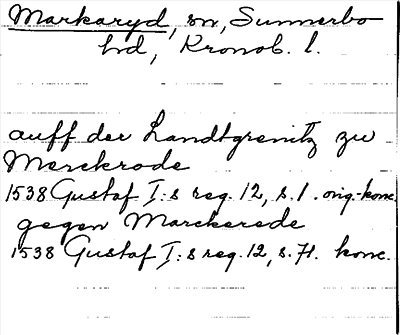 Markaryd, sn, Sunnerbo
hd, Kronob. l.
auff der Landtgrenitz zu
Merckrode
1538 Gustaf I:s reg. 12, s. 1. orig.-konc.
gegen Marckerede
1538 Gustaf I:s reg. 12, s. 71. konc.